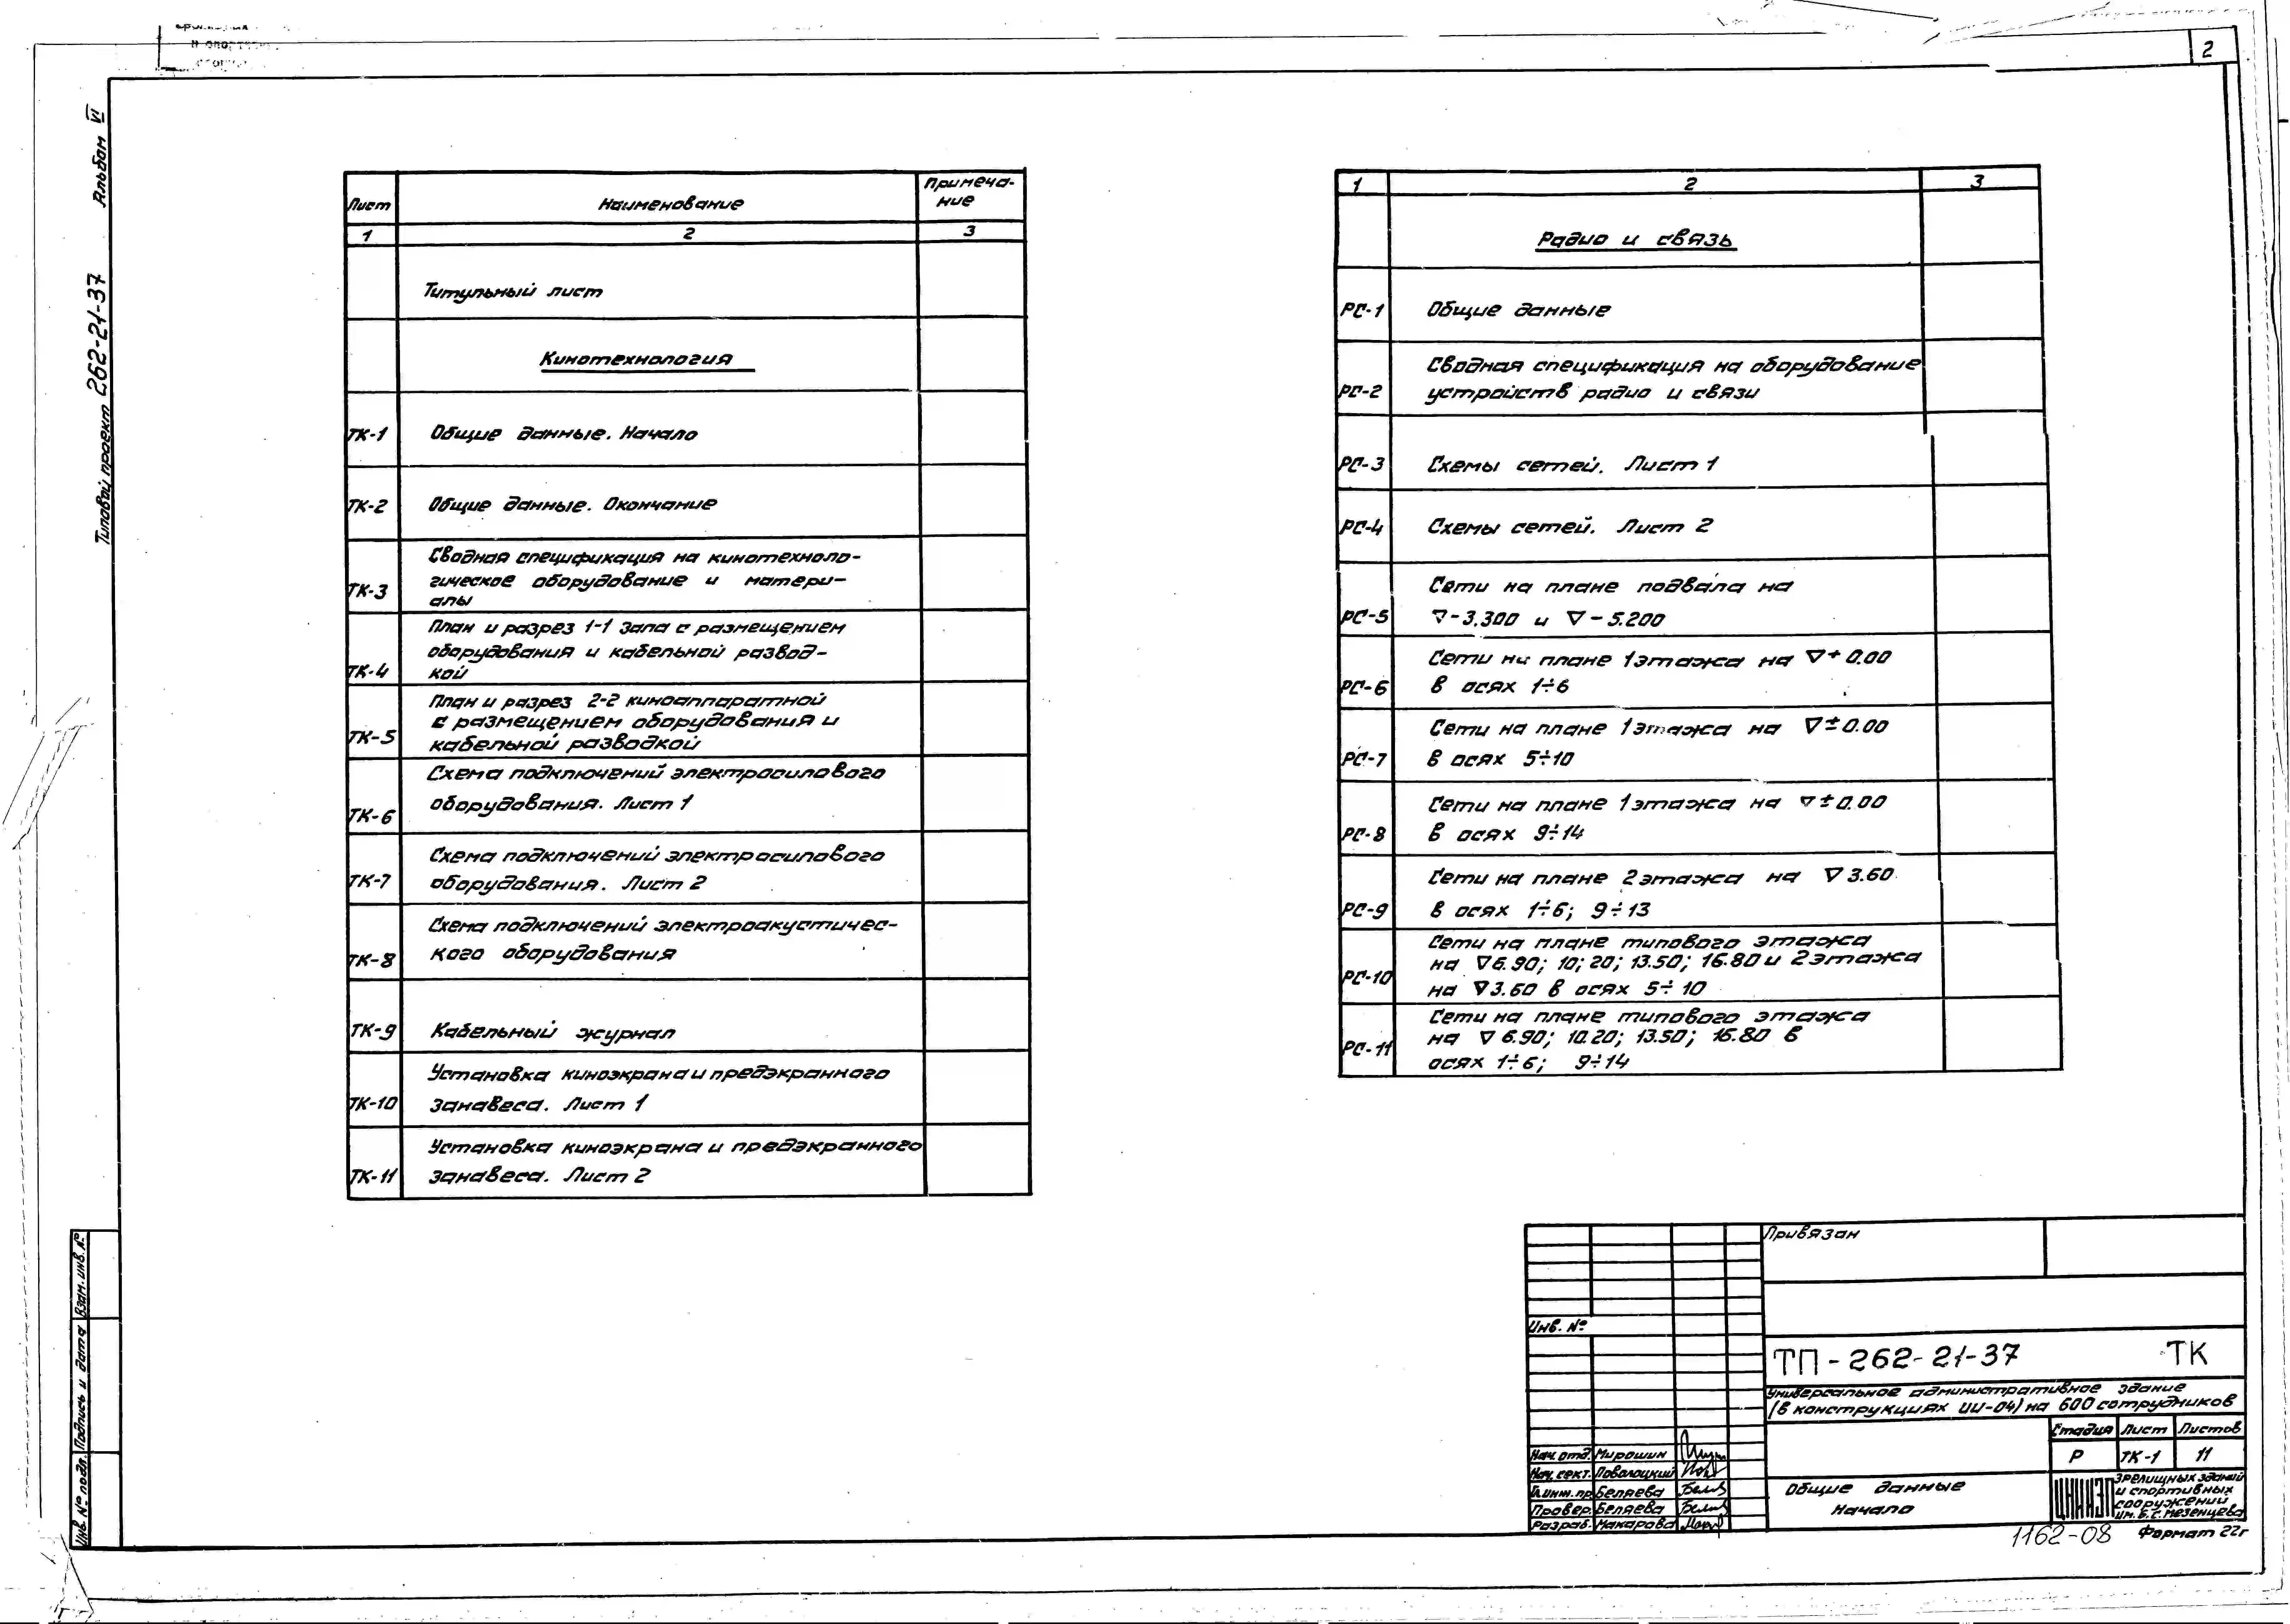 2
Альбом VI
Типовой проект 262-21-37
Лист
Наименование
Примеча-
ние
1 2 3
Титульный лист
Кинотехнология
ТК-1 Общие данные. Начало
ТК-2 Общие данные. Окончание
Сводная спецификация на кинотехноло-
гическое оборудование и матери-
ТК-3 алы
План и разрез 1-1 зала с размещением
оборудования и кабельной развод-
ТК-4 кой
План и разрез 2-2 киноаппаратной
с размещением оборудования и
ТК-5 кабельной разводкой
Схема подключений электросилового
ТК-6 оборудования. Лист 1
Схема подключений электросилового
ТК-7 оборудования. Лист 2
Схема подключений электроакустичес-
ТК-8 кого оборудования
ТК-9 Кабельный журнал
Установка киноэкрана и предэкранного
ТК-10 занавеса. Лист 1
Установка киноэкрана и предэкранного
ТК-11 занавеса. Лист 2
1 2 3
Радио и связь
РС-1 Общие данные
Сводная спецификация на оборудование
РС-2 устройств радио и связи
РС-3 Схемы сетей. Лист 1
РС-4 Схемы сетей. Лист 2
Сети на плане подвала на
РС-5 ∇-3.300 и ∇-5.200
Сети на плане 1 этажа на ∇+0.00
РС-6 в осях 1÷6
Сети на плане 1 этажа на ∇±0.00
РС-7 в осях 5÷10
Сети на плане 1 этажа на ∇±0.00
РС-8 в осях 9÷14
Сети на плане 2 этажа на ∇3.60
РС-9 в осях 1÷6; 9÷13
Сети на плане типового этажа
на ∇6.90; 10; 20; 13.50; 16.80 и 2 этажа
РС-10 на ∇3.60 в осях 5÷10
Сети на плане типового этажа
на ∇6.90; 10.20; 13.50; 16.80 в
РС-11 осях 1÷6; 9÷14
Привязан
Инв. №
ТП-262-21-37 ТК
Универсальное административное здание
(в конструкциях ИИ-04) на 600 сотрудников
Стадия Лист Листов
Р ТК-1 11
Нач. отд. Мирошин
Нач. сект. Поволоцкий
Гл.инж.пр. Беляева
Провер. Беляева
Разраб. Макарова
Общие данные
Начало
ЦНИИЭП
зрелищных зданий
и спортивных
сооружений
им. Б.С. Мезенцева
1162-08 Формат 22г
Взам. инв. №
Подпись и дата
Инв. № подл.